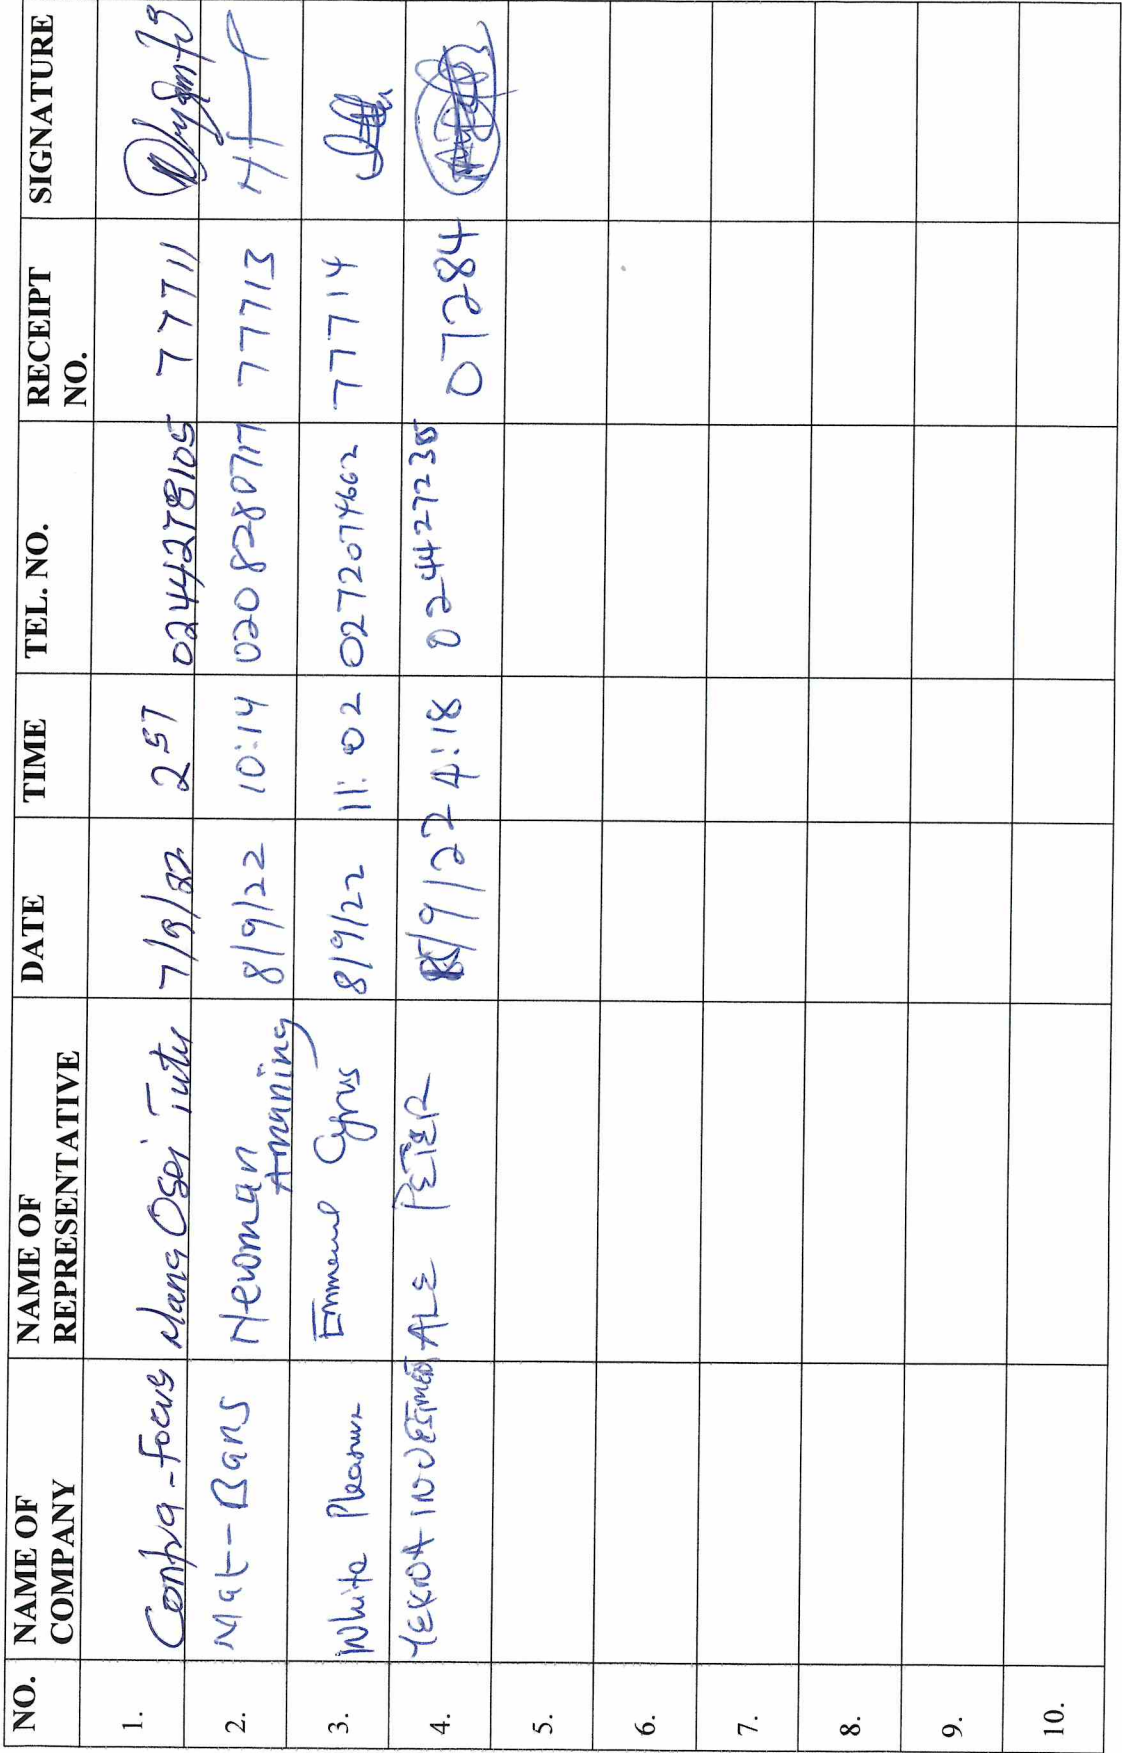 NO. NAME OF COMPANY NAME OF REPRESENTATIVE DATE TIME TEL. NO. RECEIPT NO. SIGNATURE
1. Contra-Focus Nana Osei Tutu 7/9/22 2 57 0244278105 77711
2. Mat-Bans Newman Amaning 8/9/22 10:14 0208280717 77713
3. White Pleasure Emmanuel Cyrus 8/9/22 11:02 0272074662 77714
4. INVESTMENT ALE PETER 8/9/22 4:18 07284
5.
6.
7.
8.
9.
10.